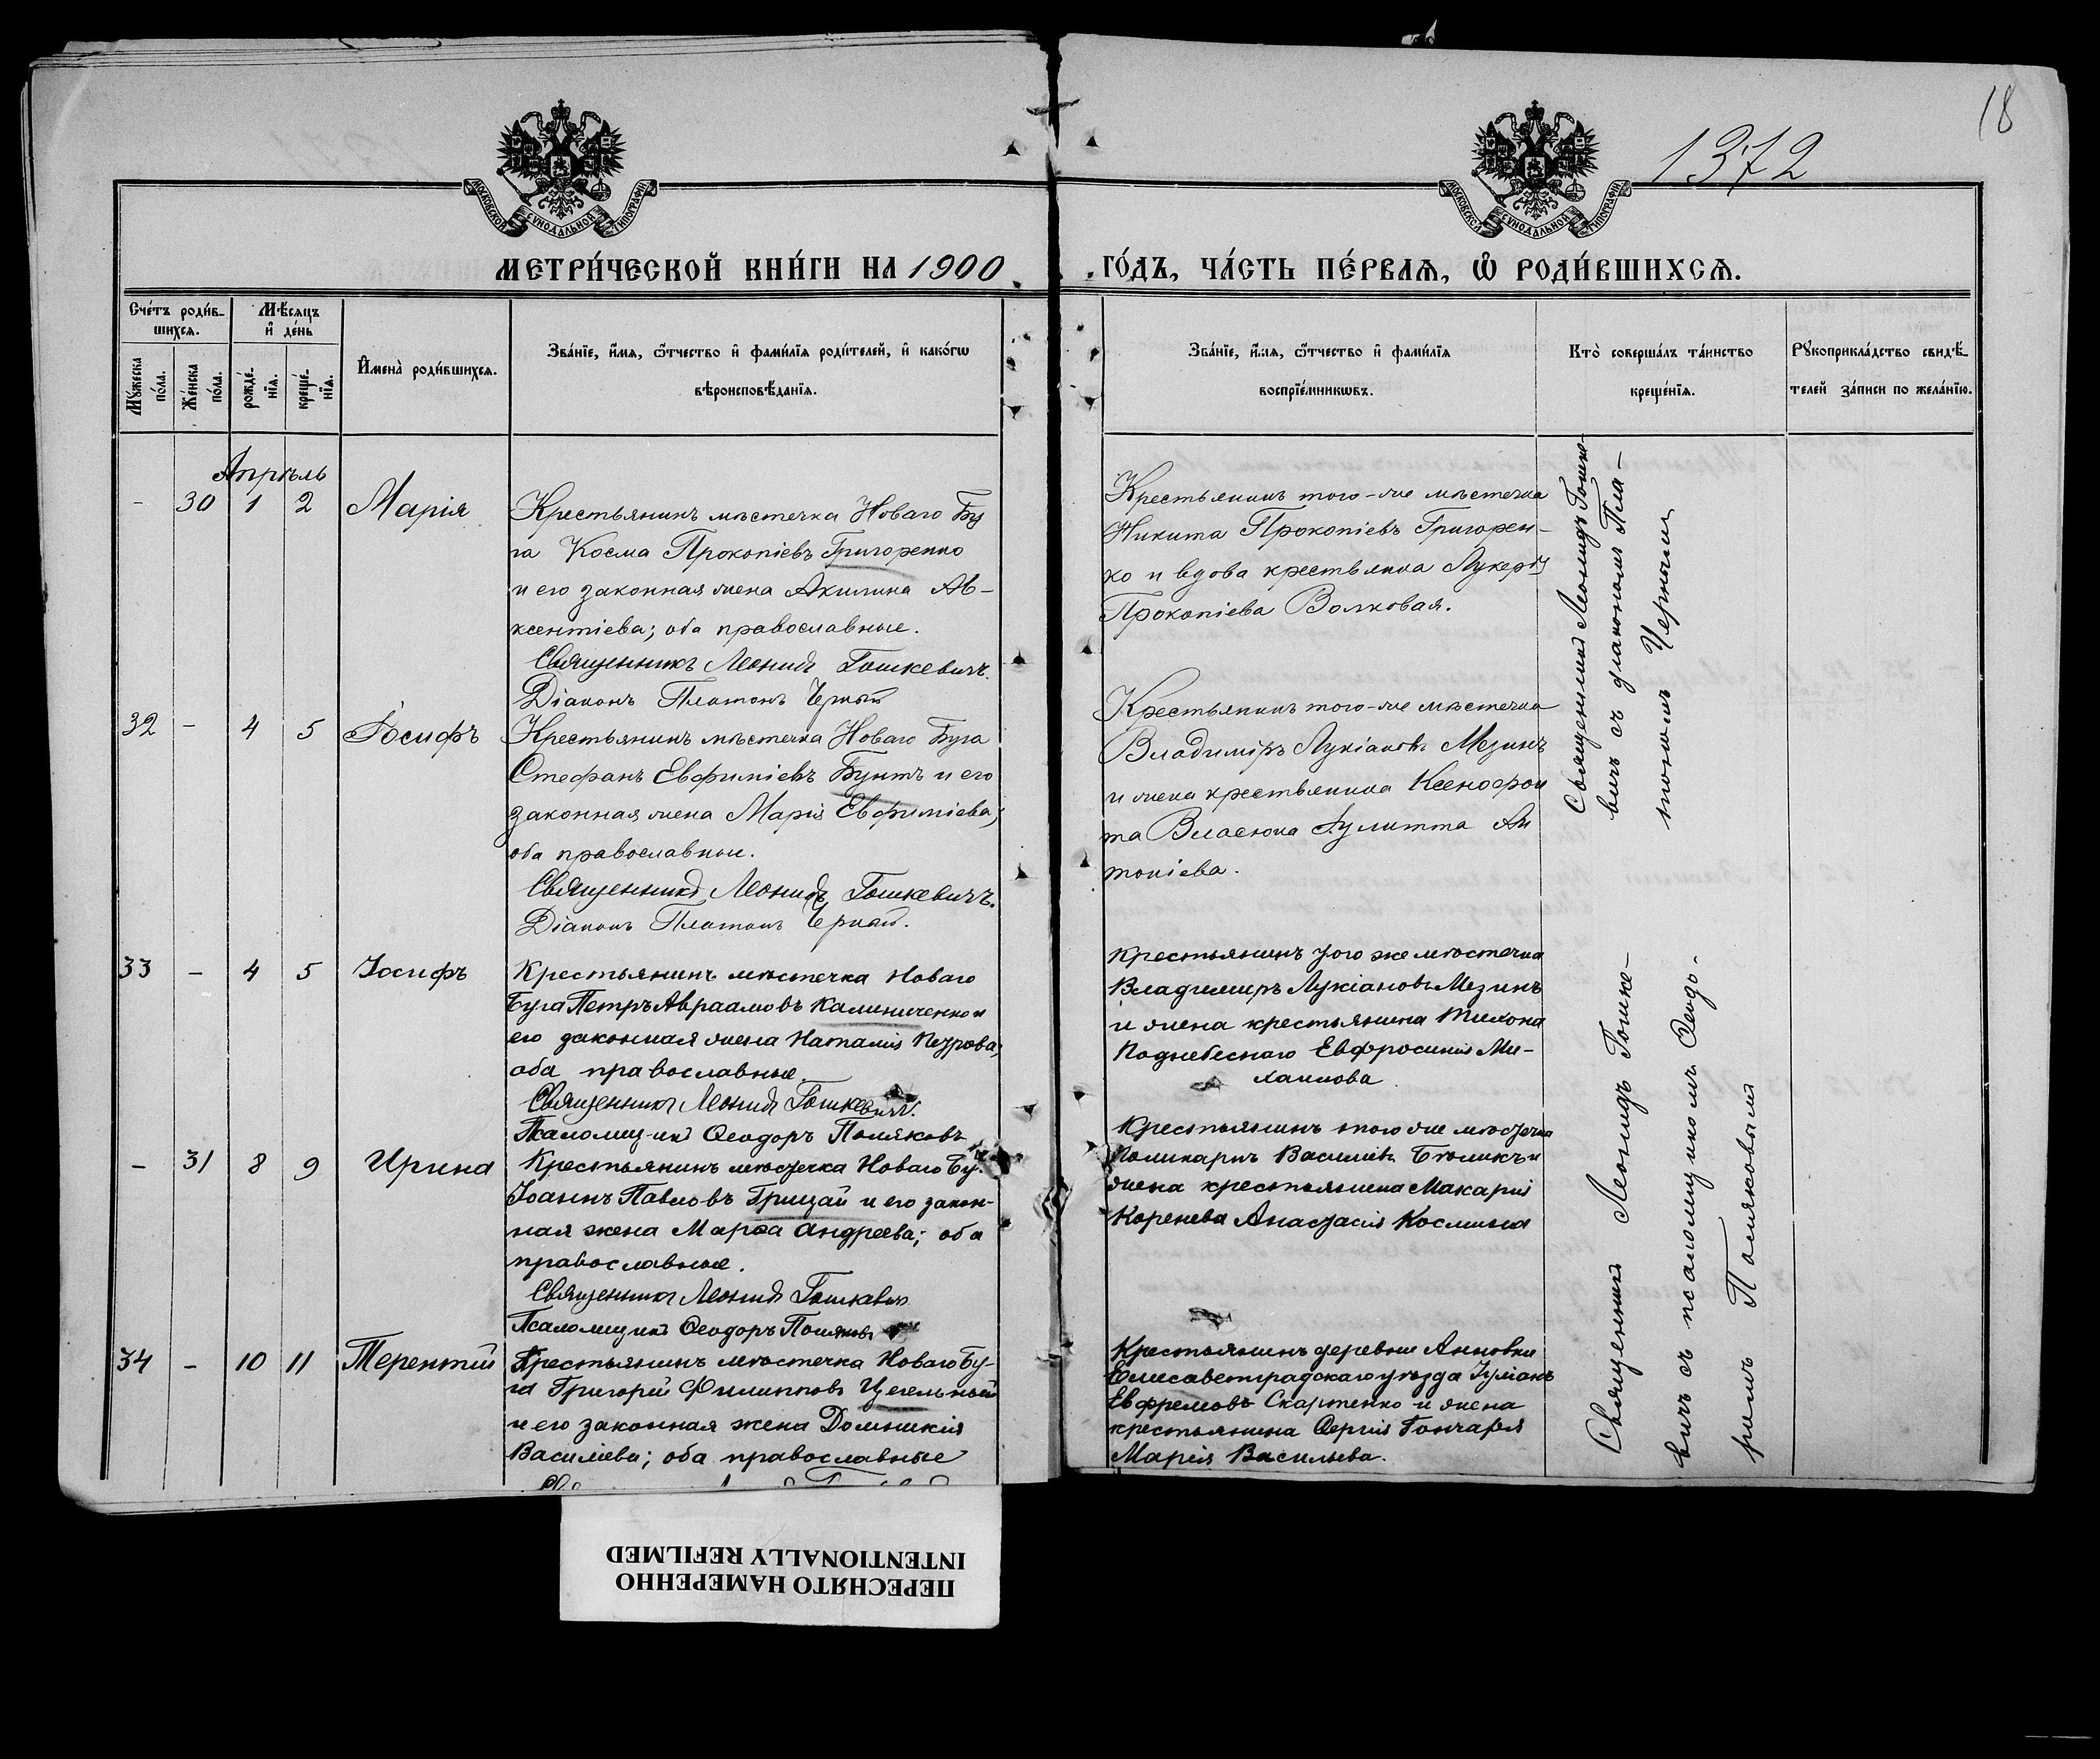 18
1372
МОСКОВСКОЙ СѴНОДАЛЬНОЙ ТИПОГРАФІИ
МОСКОВСКОЙ СѴНОДАЛЬНОЙ ТИПОГРАФІИ
МЕТРИ́ЧЕСКОЙ КНИ́ГИ НА 1900
ГО́ДЪ, ЧА́СТЬ ПЕ́РВАѦ, Ѽ РОДИ́ВШИХСѦ.
Сче́тъ роди́в-
шихсѧ.
Мѣ́сѧцъ
и҆ де́нь
Мꙋ́жеска
по́ла.
Же́нска
по́ла.
рожде́-
нїѧ.
креще́-
нїѧ.
И҆мена̀ роди́вшихсѧ.
Зва́нїе, и҆́мѧ, ѻ҆́тчество и҆ фами́лїѧ роди́телей, и҆ како́гѡ
вѣроисповѣ́данїѧ.
Зва́нїе, и҆́мѧ, ѻ҆́тчество и҆ фами́лїѧ
воспрїе́мникѡвъ.
Кто̀ соверша́лъ та́инство
креще́нїѧ.
Рꙋкоприкла́дство свидѣ́-
телей за́писи по жела́нїю.
Апрѣль
- 30 1 2 Марія
Крестьянинъ мѣстечка Новаго Бу
га Косма Прокопіевъ Григоренко
и его законная жена Акилина Ав-
ксентіева; оба православные.
Священникъ Леонидъ Гошкевичъ.
Діаконъ Платонъ Черный
Крестьянинъ того-же мѣстечка
Никита Прокопіевъ Григорен-
ко и вдова крестьянка Лукерія
Прокопіева Волковая.
Священникъ Леонидъ Гошке-
вичъ съ діакономъ Пла-
тономъ Чернымъ
32 - 4 5 Іосифъ
Крестьянинъ мѣстечка Новаго Буга
Стефанъ Евфиміевъ Бунтъ и его
законная жена Марія Евфиміева;
оба православныи.
Священникъ Леонидъ Гошкевичъ.
Діаконъ Платонъ Черный.
Крестьянинъ того-же мѣстечка
Владиміръ Лукіановъ Мезинъ
и жена крестьянина Ксенофон
та Власюка Іулитта Ан
тоніева.
33 - 4 5 Іосифъ
Крестьянинъ мѣстечка Новаго
Буга Петръ Авраамовъ Калиниченко и
его законная жена Наталія Петрова;
оба православные.
Священникъ Леонидъ Гошкевичъ.
Псаломщикъ Ѳеодоръ Поляковъ
Крестьянинъ того же мѣстечка
Владимиръ Лукіановъ Мезинъ
и жена крестьянина Тихона
Поднебеснаго Евфросинія Ми-
хаилова
Священникъ Леонидъ Гошке-
вичъ съ псаломщикомъ Ѳеодо-
ромъ Поляковымъ
- 31 8 9 Ирина
Крестьянинъ мѣстечка Новаго Бу-
Іоаннъ Павловъ Грицай и его закон-
ная жена Марѳа Андреева; оба
православные.
Священникъ Леонидъ Гошкевичъ
Псаломщикъ Ѳеодоръ Поляковъ
Крестьянинъ того же мѣстечка
Поликарпъ Василіевъ Бѣликъ и
жена крестьянина Макарія
Коренева Анастасія Космина
34 - 10 11 Терентій
Крестьянинъ мѣстечка Новаго Бу-
га Григорій Филипповъ Цегельный
и его законная жена Домникія
Василіева; оба православные
Крестьянинъ деревни Анновки
Елисаветградскаго уѣзда Іуліанъ
Евфремовъ Скартенко и жена
крестьянина Сергія Гончара
Марія Васильева.
ПЕРЕСНЯТО НАМЕРЕННО
INTENTIONALLY REFILMED